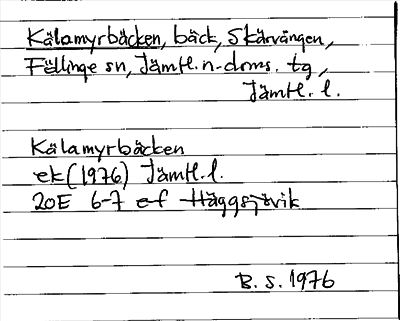 Kälamyrbäcken, bäck, Skärvången,
Föllinge sn, Jämtl. n. doms. tg,
Jämtl. l.
Kälamyrbäcken
ek (1976) Jämtl. l.
20E 6-7 e-f Häggsjövik
B. S. 1976